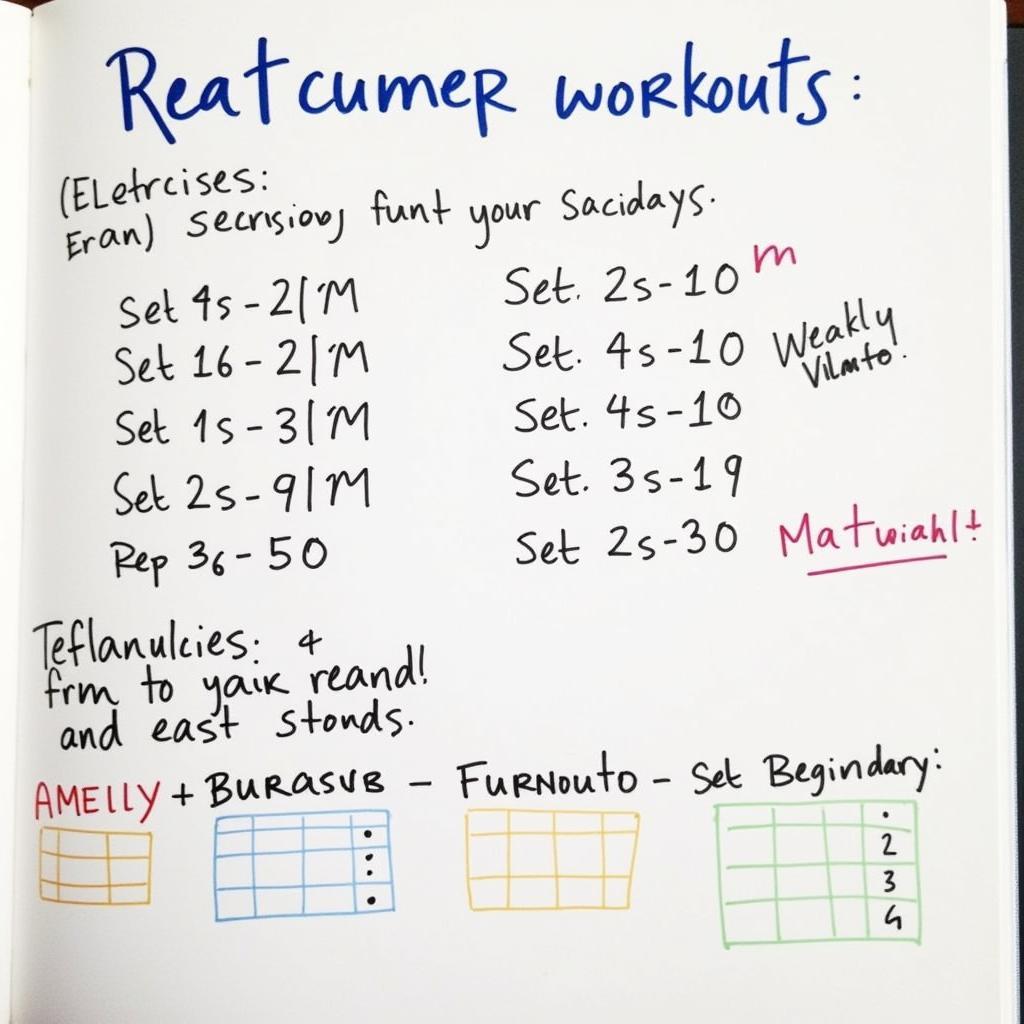 Reatcumer workouts:
(ELetrcises:
Eran) secrsiovj funt your Sacidays.
Set 4s-2/'M
Set 16-2/'M
Set 1s-3/'M
Set 2s-9/M
Rep 36-50
Set. 2s-10 m
Set. 4s-10
Set. 4s-10
Set. 3s-19
Set 2s-30
Weakly
Vilmto.
Matwiahl!
Teflanulcies: 4
frm to yaik reand!
and east stonds.
AMELLY + BURASVB - FURNOUTO - Set Begindary:
2
3
4